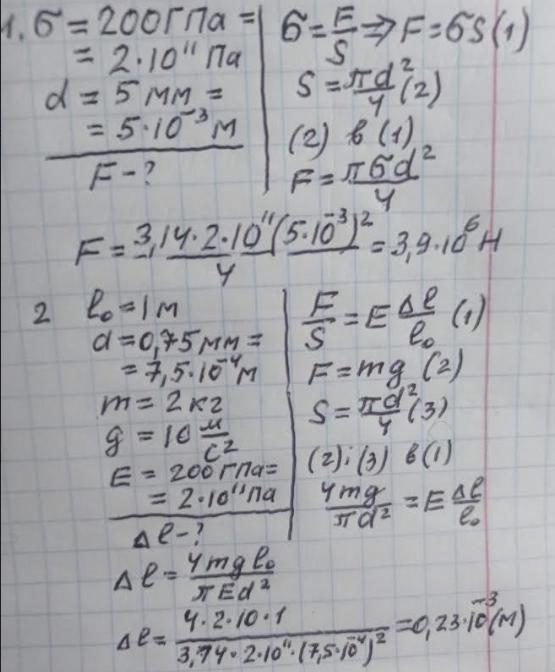 1. σ = 200 ГПа =
= 2·10¹¹ Па
d = 5 мм =
= 5·10⁻³ м
F - ?
σ = F/S ⇒ F = σS (1)
S = πd²/4 (2)
(2) в (1)
F = πσd²/4
F = 3,14·2·10¹¹(5·10⁻³)²/4 = 3,9·10⁶ Н
2 l₀ = 1 м
d = 0,75 мм =
= 7,5·10⁻⁴ м
m = 2 кг
g = 10 м/с²
E = 200 ГПа =
= 2·10¹¹ Па
Δl - ?
F/S = E Δl/l₀ (1)
F = mg (2)
S = πd²/4 (3)
(2) і (3) в (1)
4mg/πd² = E Δl/l₀
Δl = 4mgl₀/πEd²
Δl = 4·2·10·1/3,14·2·10¹¹·(7,5·10⁻⁴)² = 0,23·10⁻³ (м)